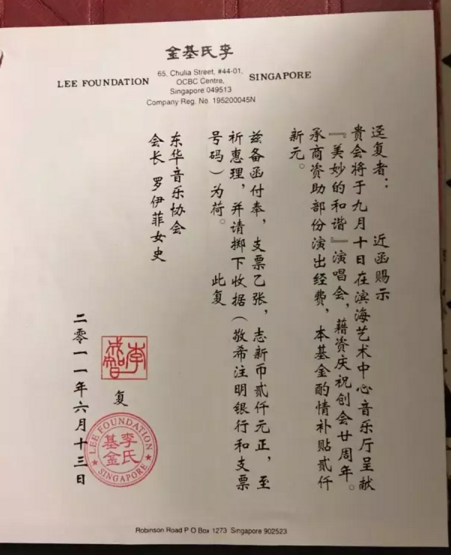 李氏基金
LEE FOUNDATION
65, Chulia Street, #44-01,
OCBC Centre,
Singapore 049513
Company Reg. No. 195200045N
SINGAPORE
迳复者： 近函赐示
贵会将于九月十日在滨海艺术中心音乐厅呈献
『美妙的和谐』演唱会，藉资庆祝创会廿周年。
承商资助部份演出经费，本基金酌情补贴贰仟
新元。
兹备函付奉，支票乙张，志新币贰仟元正，至
祈惠理，并请掷下收据（敬希注明银行和支票
号码）为荷。 此复
东华音乐协会
会长 罗伊菲女史
李成智
复
LEE FOUNDATION
李氏基金
SINGAPORE
二零一一年六月十三日
Robinson Road P O Box 1273 Singapore 902523